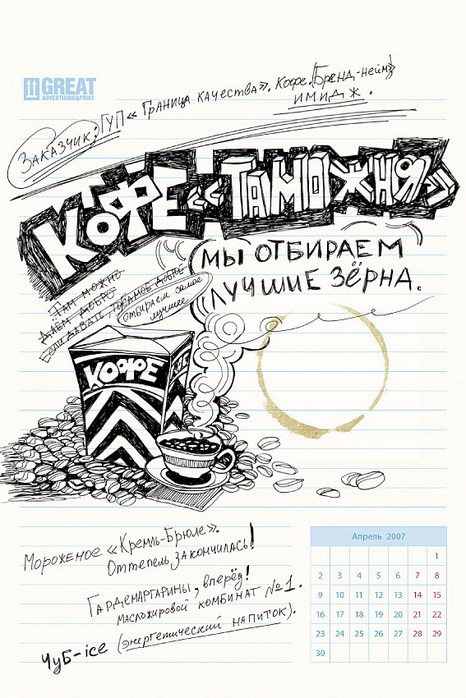 GREAT
ADVERTISING&PRINT
Заказчик: ГУП «Граница качества». Кофе. (Бренд-нейм)
имидж.
КОФЕ «ТАМОЖНЯ»
МЫ ОТБИРАЕМ
ЛУЧШИЕ ЗЁРНА.
Там можно
Даём добро
отбираем самое
лучшее
КОФЕ
Мороженое «Кремль-Брюле».
Оттепель закончилась!
Гардемаргарины, вперёд!
Масложировой комбинат №1.
ЧуБ-ice (энергетический напиток).
Апрель 2007
1
2 3 4 5 6 7 8
9 10 11 12 13 14 15
16 17 18 19 20 21 22
23 24 25 26 27 28 29
30